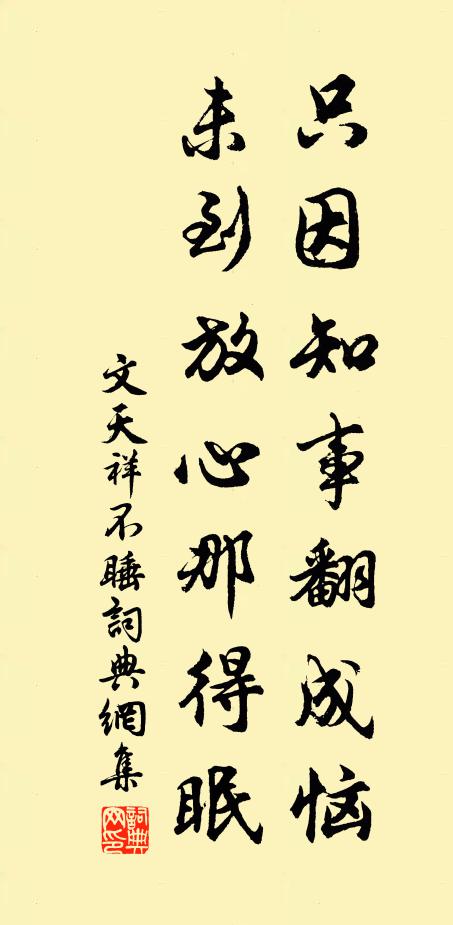 只因知事翻成恼
未到放心那得眠
文天祥不睡詞典網集
詞典網印